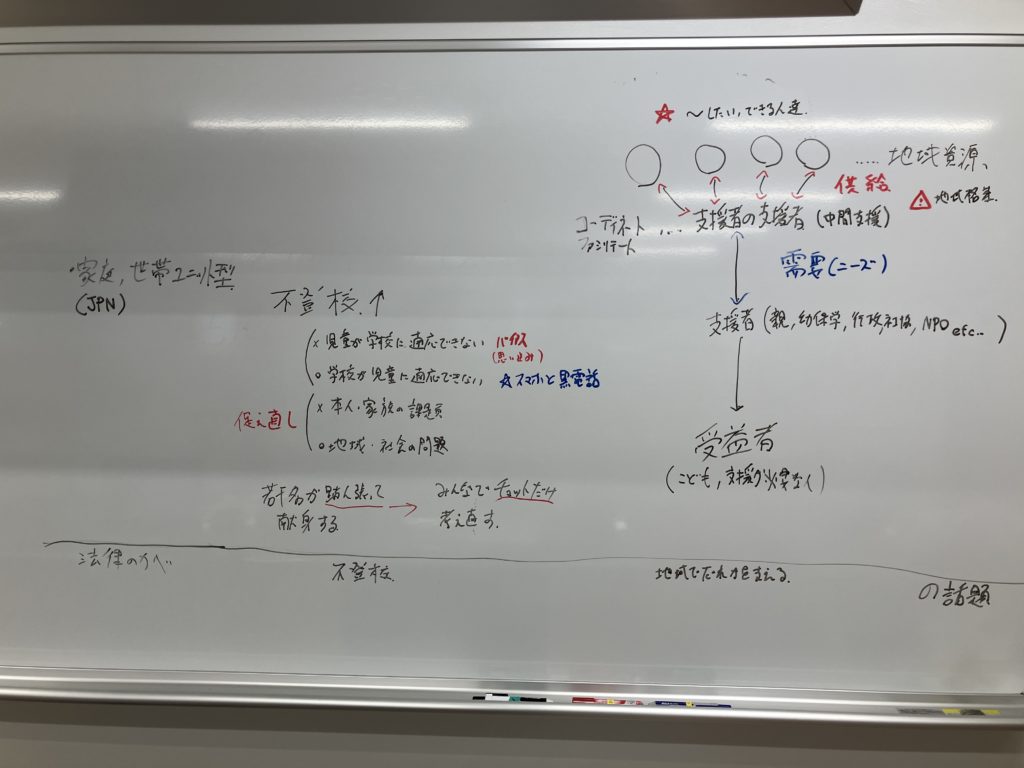 ・家庭,世帯ユニット型
(JPN)
不登校↑
× 児童が学校に適応できない バイアス
(思い込み)
○ 学校が児童に適応できない ☆スマホと黒電話
捉え直し
× 本人・家族の課題
○ 地域・社会の問題
若干名が踏ん張って → みんなでチョットだけ
献身する 考え直す.
☆ ～したい,できる人達.
..... 地域資源、
供給
⚠ 地域格差.
コーディネート ... 支援者の支援者 (中間支援)
ファシリテート
需要(ニーズ)
支援者 (親,幼保学,行政,社協,NPO etc...)
受益者
(こども,支援が必要な人)
法律のカベ 不登校. 地域でだれかを支える.
の話題